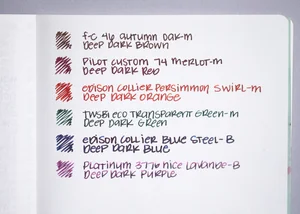 F-C 46 Autumn Oak-M
Deep Dark Brown
Pilot Custom 74 Merlot-M
Deep Dark Red
Edison Collier Persimmon Swirl-M
Deep Dark Orange
TWSBI Eco Transparent Green-M
Deep Dark Green
Edison Collier Blue Steel-B
Deep Dark Blue
Platinum 3776 Nice Lavande-B
Deep Dark Purple